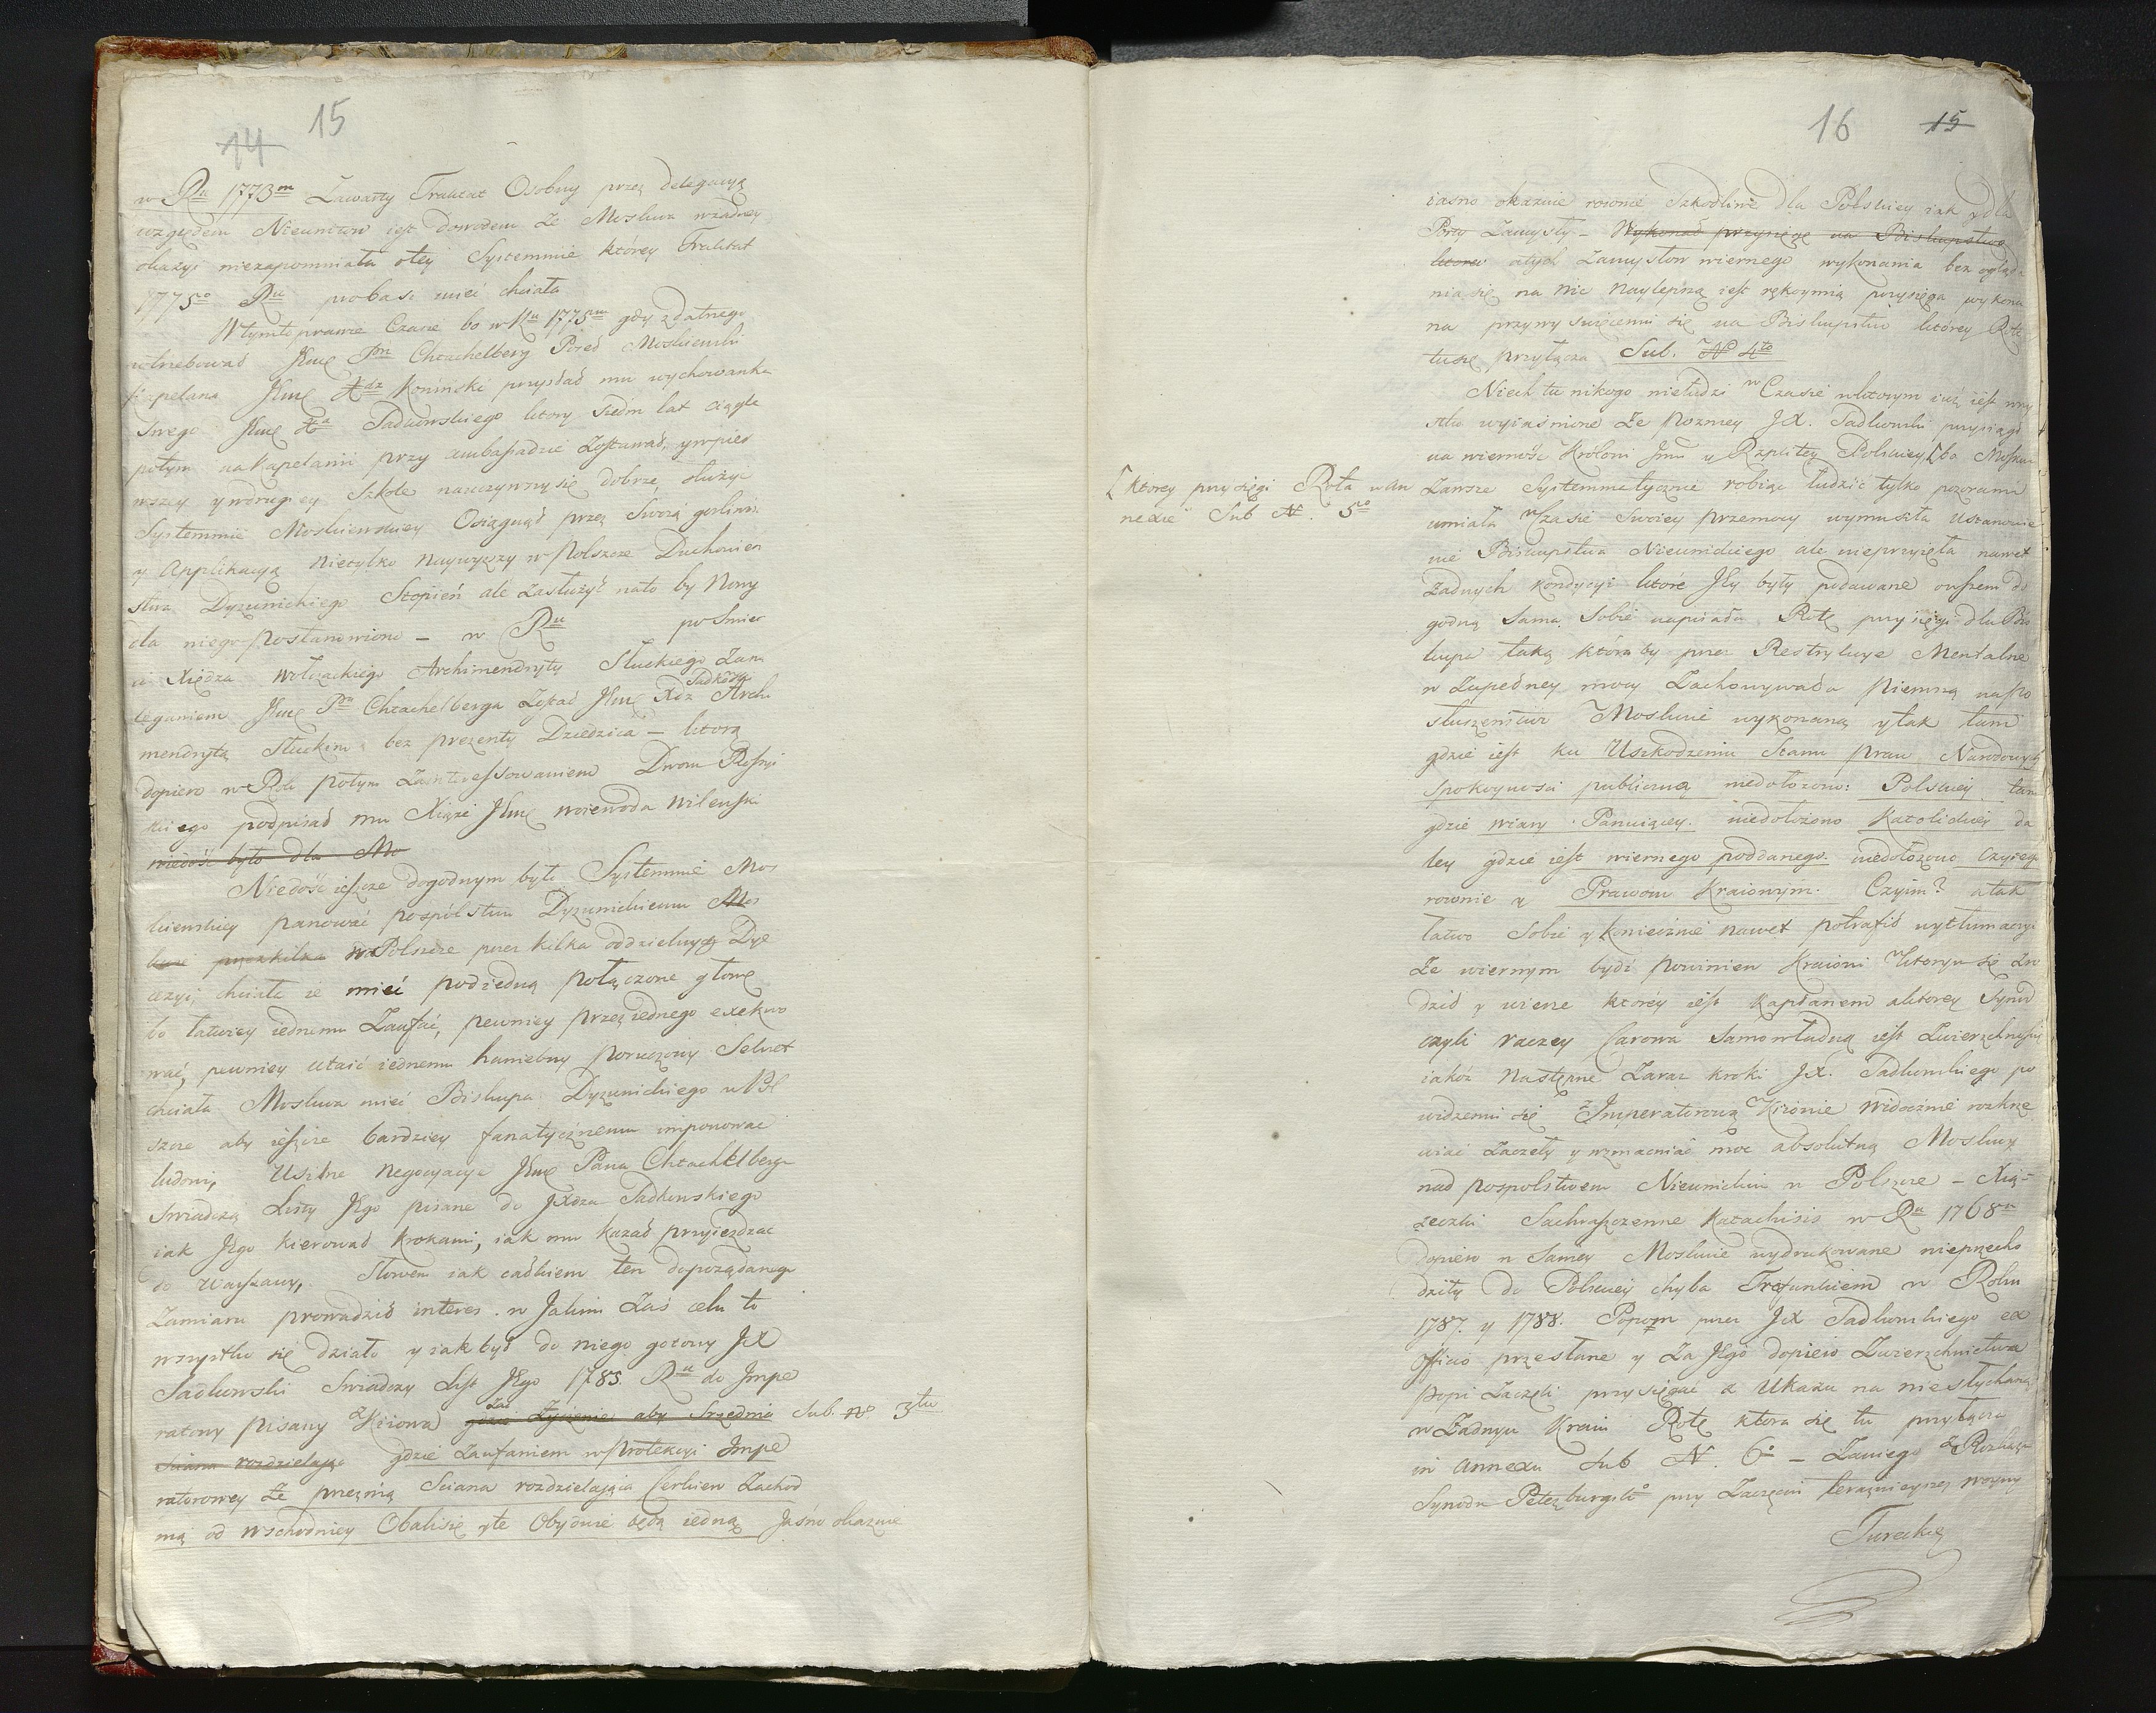 15
14
w Ru 1773m Zawarty Traktat Osobny przez delegacyą
względem Nieunitow jest dowodem że Moskwa wżadney
okazyi niezapomniała otey Systemmie którey Traktat
1775o Ru probasi mieć chciała
Wtymto prawie Czasie bo w Ru 1775m gdy zdatnego
potrzebował Jmć Pn Chtachelberg Poseł Moskiewski
kapelana Jmć Xdz Koniński przysłał mu wychowanka
swego Jmć Xa Sadkowskiego ktory siedm lat ciągle
potym nakapelanii przy ambaſsadzie Zostawał, ywpier
wszey ywdrugiey Szkole nauczywszy się dobrze, służyć
Systemmie Moskiewskiey Osiągnął przez Swoią gorliwo
y Applikacyą nietylko naywyższy w Polszcze Duchowień
stwa Dyzunickiego Stopień ale Zasłużył nato by Nowy
dla niego postanowiono – w Ru po Śmier
ci Xiędza Wołczackiego Archimendryty Słuckiego Zale
ceganiem Jmć Pn Chtachelberga Został Jmć Xdz Sadkows Archi
mendrytą Słuckim bez prezenty Dziedzica – ktorą
dopiero w Rok potym Zainteressowaniem Dwora Roſsyi
skiego podpisał mu Xiąże Jmć woiewoda wilenski
niedość było dla Mo
Niedość ieſzcze dogodnym było Systemmie Mos
kiewskiey panować pospólstwu Dyzunickiemu Mos
kwie przezkilka w Polszcze przez kilka oddzielnych Dye
cezyi, chciała ie mieć podiedną połączone głową
bo łatwiey iednemu Zaufać, pewniey przez iednego exekwo
wać, pewniey utaić iednemu haniebny poruczony Sekret
chciała Moskwa mieć Biskupa Dyzunickiego w Pol
szcze aby ieſzcze bardziey fanatycznemu imponować
ludowi, Uslne negocyacye Jmć Pana Chtachelberga
Swiadczą Listy Jego pisane do JXdza Sadkowskiego
iak Jego kierował krokami, iak mu kazał przyieżdzać
do Warſzawy, Słowem iak całkiem ten dopożądanego
Zamiaru prowadził interes. w Jakim Zaś celu to
wszystko się działo y iak był do niego gotowy JX
Sadkowski Swiadczy List Jego 1785. Ru do Impe
ratowy pisany z Kiiowa gdzie Zaś życzenie aby Srzednia Sub. No 3tio
sciana rozdzielaiąca gdzie Zaufaniem w Protekcyi Impe
ratorowey że przeznią Sciana rozdzielaiąca Cerkiew Zachod
nią od wschodniey Obalisię yże Obydwie będą iedną Jasno okazuie
16
15
iasno okazuie rownie Szkodliwe dla Polskiey iak ydla
Porty Zamysły – Wykonał przysięgę na Biskupstwo
ktorei atych Zamysłow wiernego wykonania bez ogląda
nia się na nic naylepszą iest rękoymią przysięga wykona
na przywyswięceniu się na Biskupstwo ktorey Rota
tusię przyłącza Sub. No 4to
Niech tu nikogo niełudzi w Czasie wktorym iuż iest wszy
stko wyiaśnione że pozniey JX. Sadkowski przysiągł
na wierność Królowi Jmci y Rzpltey Polskiey [ bo Moskwa
[ ktorey przysięgi Rota w An
nexie Sub N. 5to
Zawsze Systemmetycznie robiąc łudzić tylko pozorami
umiała w Czasie Swoiey przemocy wymusiła Ustanowie
nie Biskupstwa Nieunickiego ale nieprzyięła nawet
żadnych kondycyi ktore Jey były podawane owſzem do
godną Sama Sobie napisała Rotę przysięgi dla Bis
kupa taką ktoraby przez Restrykcye Mentalne
w Zupełney mocy Zachowywała pierwszą naPo
słuszeństwo Moskwie wykonaną ytak tam
gdzie iest ku Uszkodzeniu Stanu praw Narodowych
spokoyności publiczney niedołożono: Polskiey tam
gdzie wiary Panuiącey. niedołożono Katolickiey da
ley gdzie iest wiernego poddanego. niedołożono Czyiego
rownie y Prawom Kraiowym. Czyim? atak
łatwo Sobie y koniecznie nawet potrafił wytłumaczyć
że wiernym bydź powinien Kraiowi w ktorym się zro
dził y wierze ktorey iest kapłanem aktorey Synod
czyli raczey Carowa Samowładną iest Zwierzchnością
iakoż następne Zaraz kroki JX. Sadkowskiego po
widzeniu się z Imperatorową w Kiiowie widocznie rozkrze
wiać Zaczęły y wzmacniać moc absolutną Moskwy
nad pospolstwem Nieunickim w Polszcze – Xią-
żeczki Sachraſzczenne Katachisis w Ru 1768m
dopiero w Samey Moskwie wydrukowane nieprzecho
dziły do Polskiey chyba Trafunkiem w Roku
1787. y 1788. Popom przez JX Sadkowskiego ex
Officio przesłane y Za Jego dopiero Zwierzchnictwa
Popi Zaczęli przysięgać z Ukazu na niesłychaną
w Żadnym Kraiu Rotę ktora się tu przyłącza
in Annexu Sub N. 6o – Zaniego z Rozkazu
Synodu Petersburgsko przy Zaczęciu teraznieyszey woyny
Tureckiey